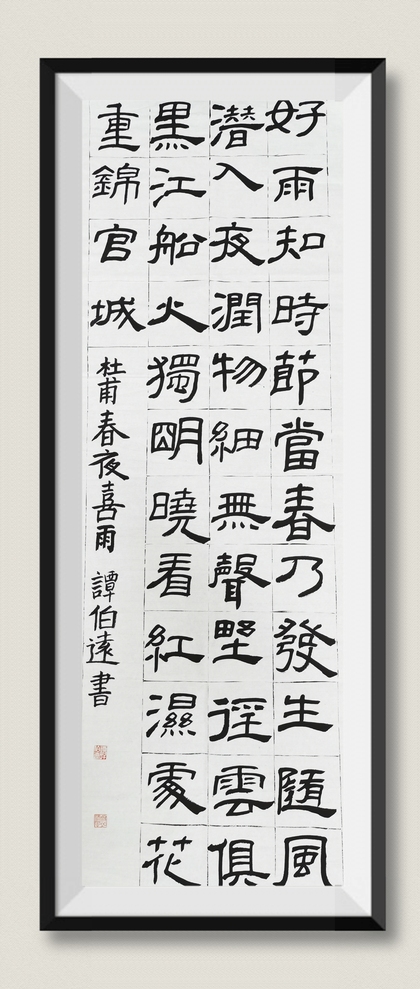 好雨知時節當春乃發生隨風
潛入夜潤物細無聲野徑雲俱
黑江船火獨朙曉看紅濕處花
重錦官城
杜甫春夜喜雨 譚伯遠書